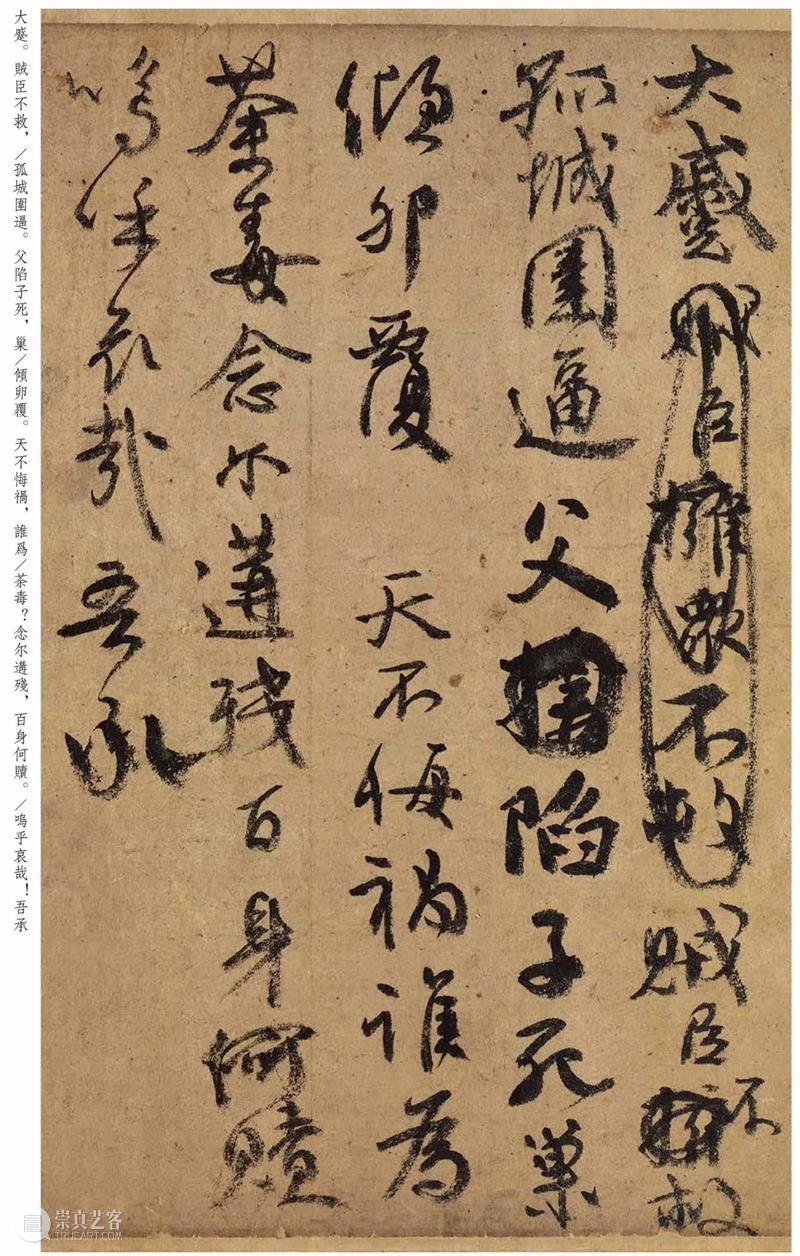 大蹙賊臣擁衆不救賊臣不救
孤城圍逼父擒陷子死巢
傾卵覆 天不悔禍誰為
荼毒念尔遘殘百身何贖
嗚乎哀哉吾承
大蹙。賊臣不救，／孤城圍逼。父陷子死，巢／傾卵覆。天不悔禍，誰爲／荼毒？念尔遘殘，百身何贖。／嗚乎哀哉！吾承
崇真艺客
TRUEART.COM